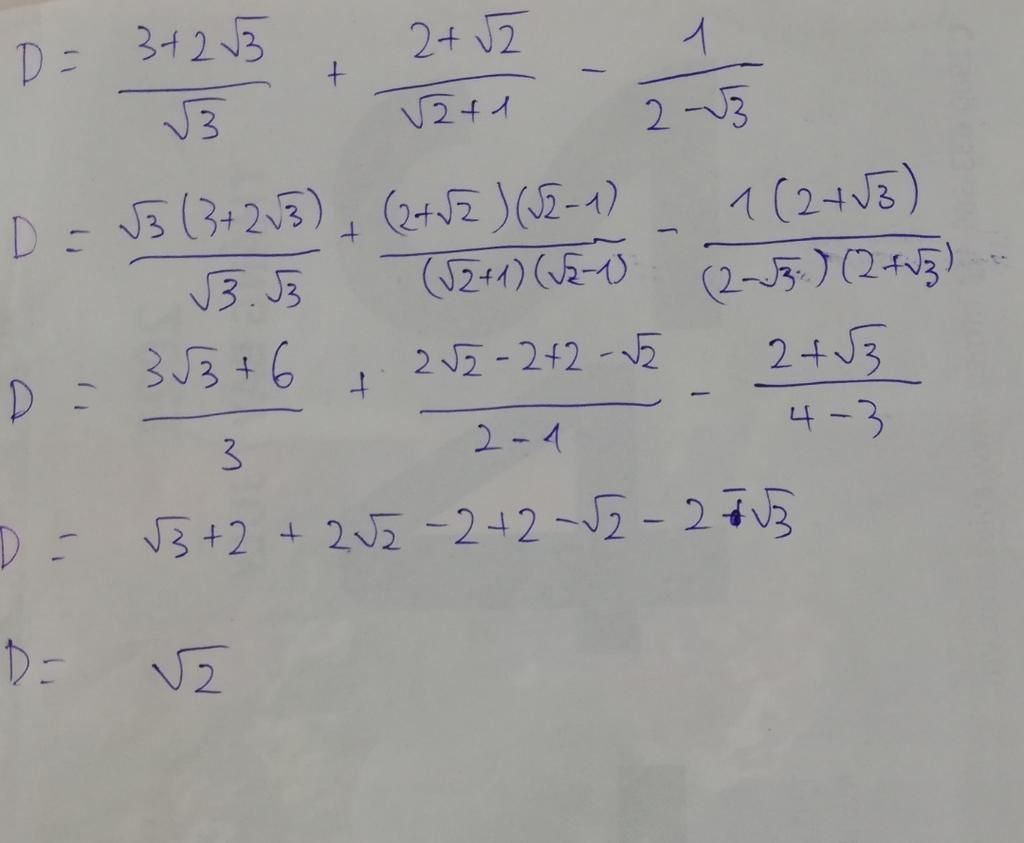 D = (3+2√3)/√3 + (2+√2)/(√2+1) - 1/(2-√3)
D = √3(3+2√3)/(√3.√3) + (2+√2)(√2-1)/((√2+1)(√2-1)) - 1(2+√3)/((2-√3)(2+√3))
D = (3√3+6)/3 + (2√2-2+2-√2)/(2-1) - (2+√3)/(4-3)
D = √3+2 + 2√2 -2+2-√2 - 2 -√3
D = √2